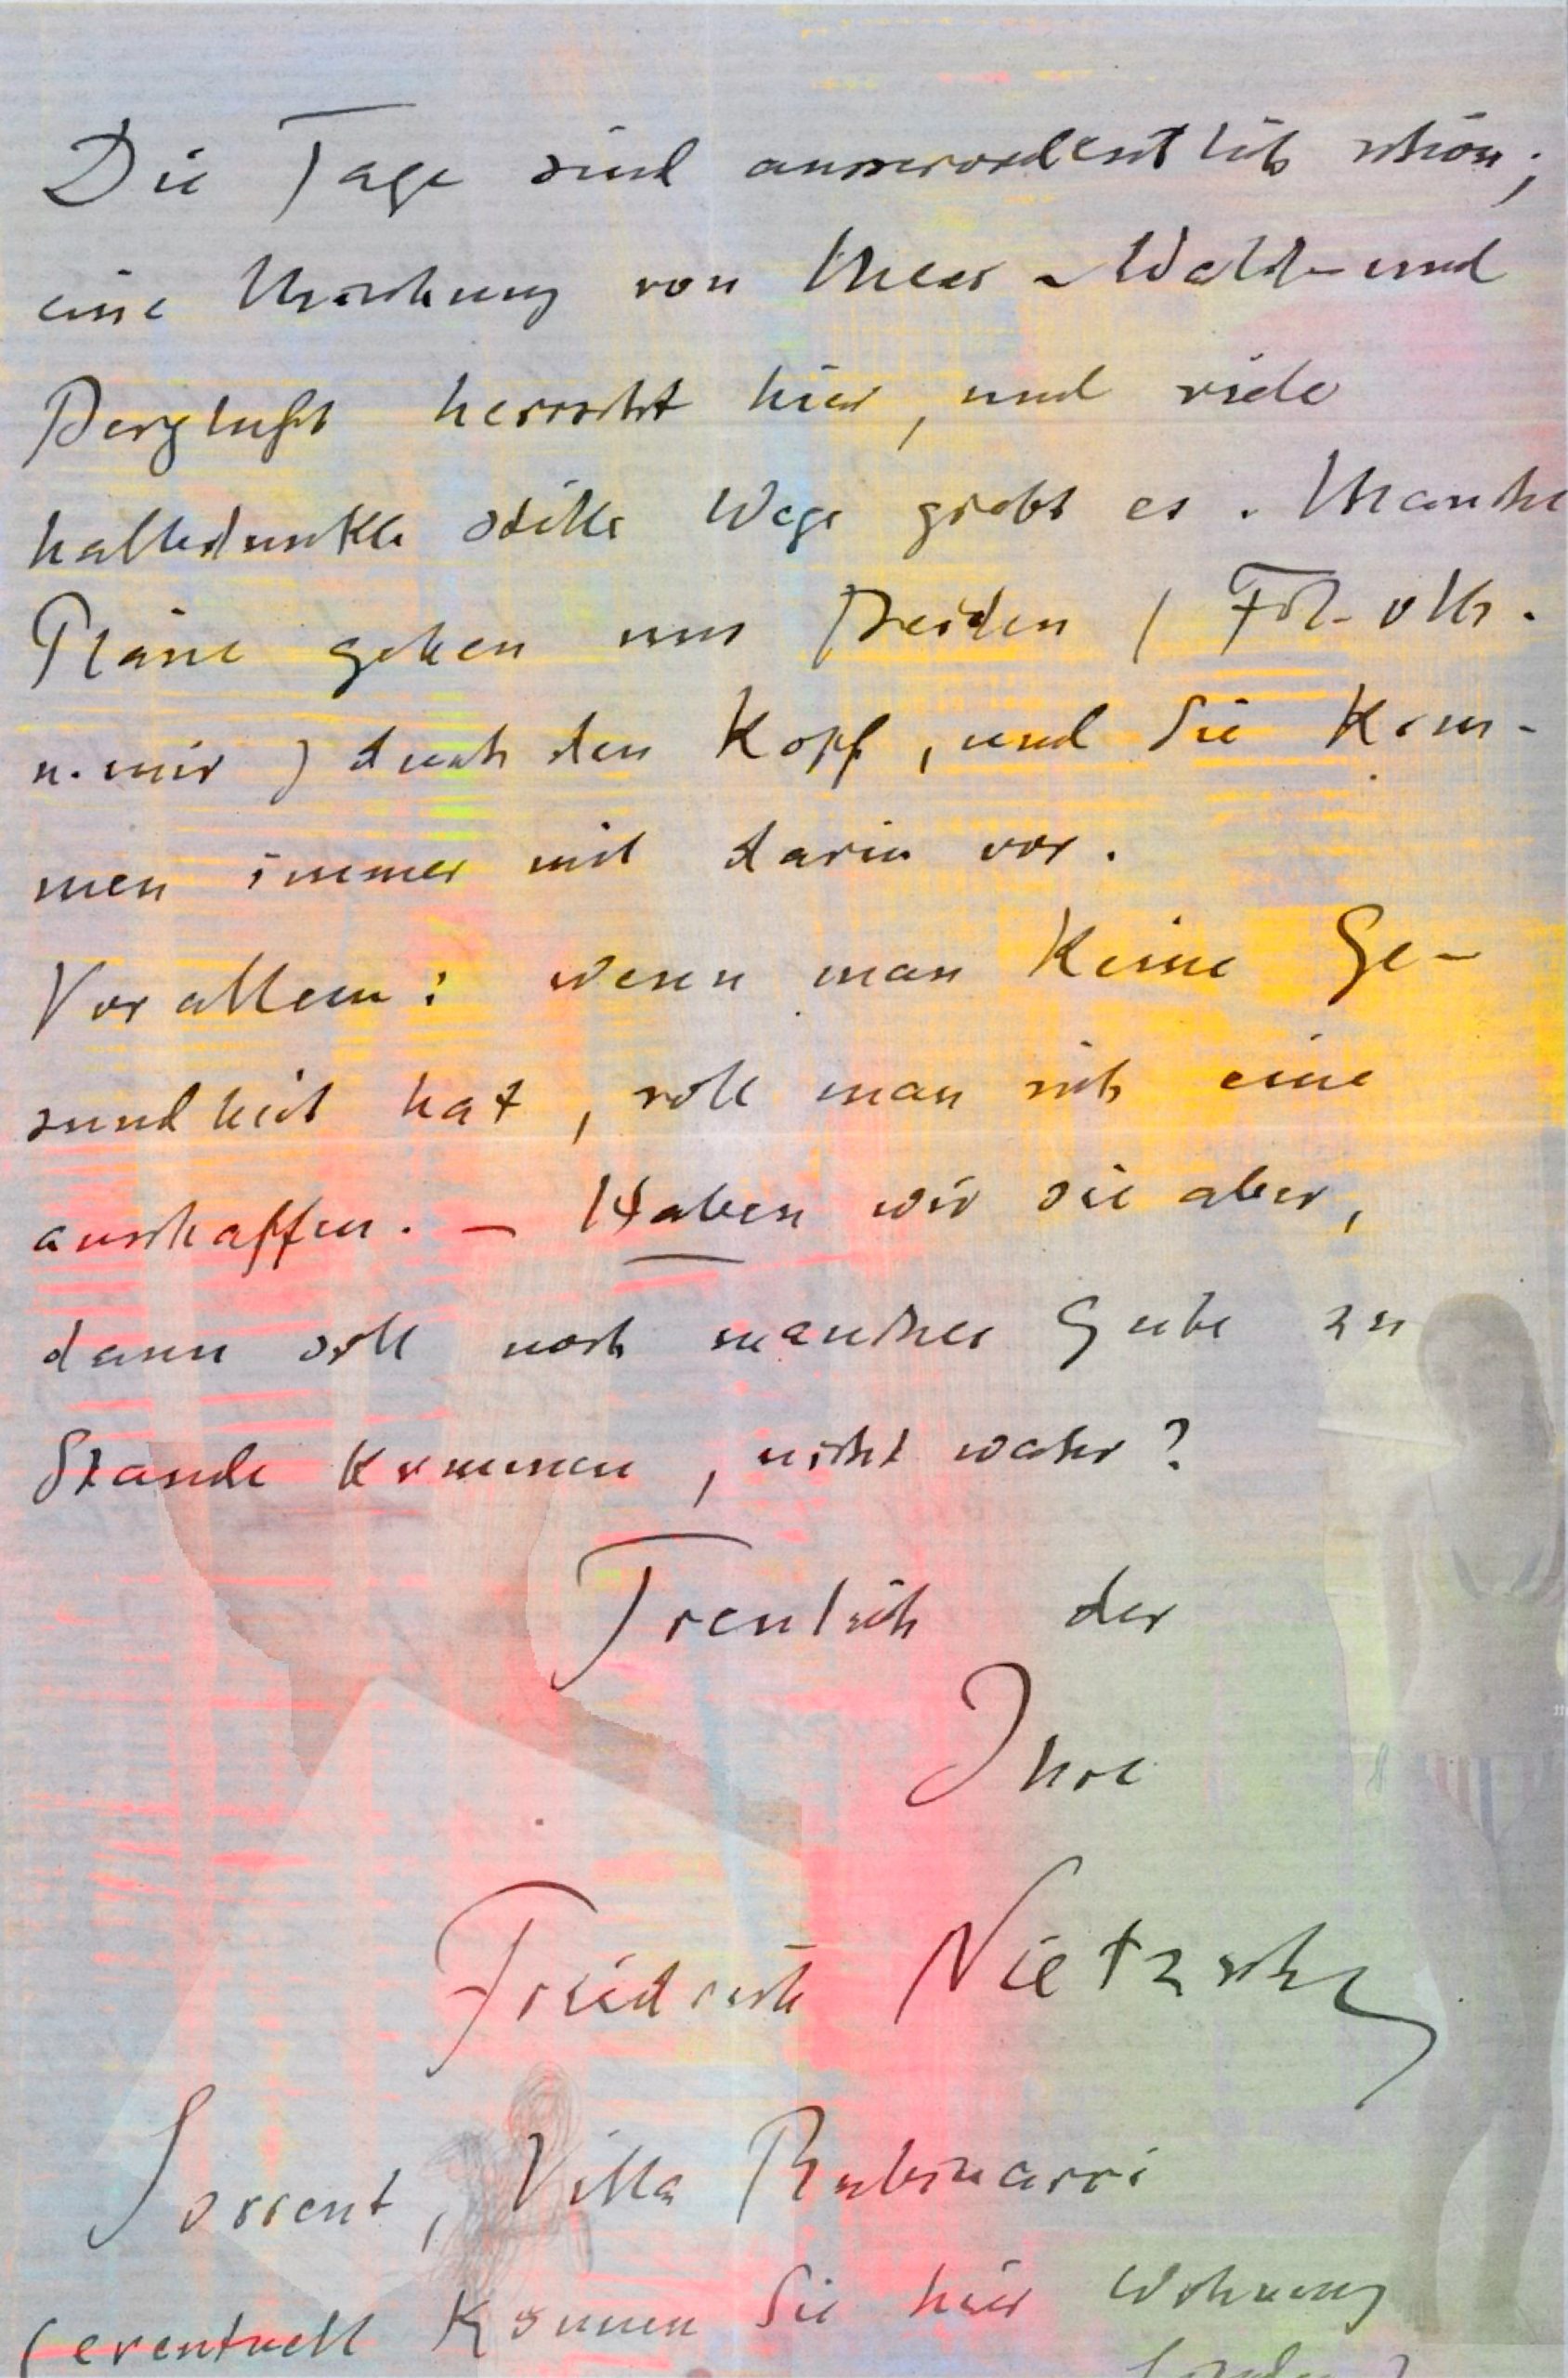 Die Tage sind ausserordentlich schön;
eine Mischung von Meer- Wald- und
Bergluft herrscht hier, und viele
halbdunkle stille Wege giebt es. Manche
Pläne gehen uns Beiden (
u. mir) durch den Kopf, und Sie kom-
men immer mit darin vor.
Vor allem: wenn man keine Ge-
sundheit hat, soll man sich eine
anschaffen. — Haben wir sie aber,
dann soll noch manches Gute zu
Stande kommen, nicht wahr?
Treulich der
Ihre
Friedrich Nietzsche
Sorrent, Villa Rubinacci
(eventuell können Sie hier Wohnung